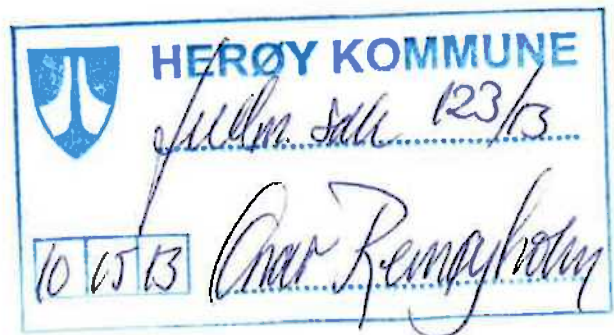 HERØY KOMMUNE
sak 123/13
10 05 13 Onar Remøyholm